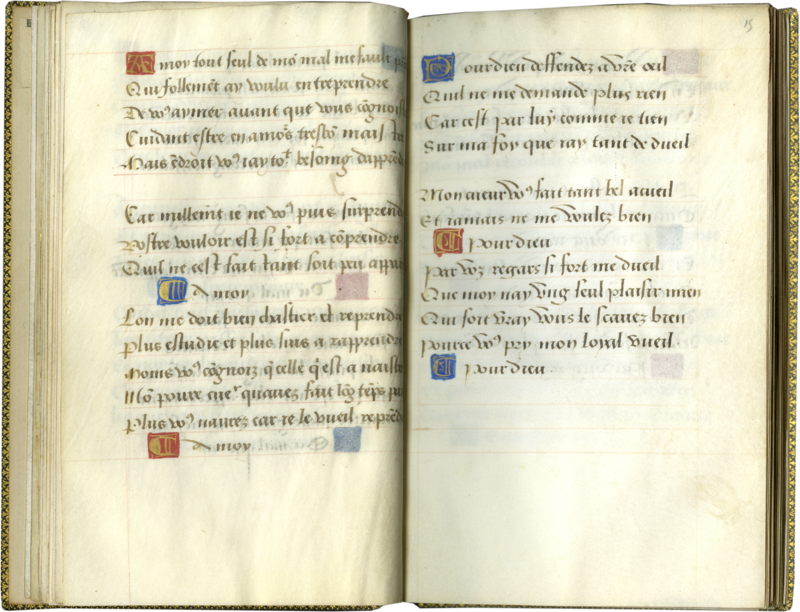 A moy tout seul de mõ mal me fault
Qui follemẽt ay voulu entreprendre
De voꝰ aymer auant que vous cõgnoist
Cuidant estre en amoꝰs tresto mais
Mais ẽdroit voꝰ iay toᵗ besoing dapprẽd
Car nullemẽt ie ne voꝰ puis surprend
Vostre vouloir est si fort a cõprendre
Quil ne cest fait tant soit peu appar
A moy
Lon me doit bien chastier et reprendre
Plus estudie et plus suis a rapprendre
Moins voꝰ cõgnoiz q̃ celle q̃ est a naist
Mõ poure cueʳ quauez fait lõg tẽps
Plus voꝰ naurez car ie le vueil reprẽd
A moy
15
Pour dieu deffendez a vr̃e oeil
Quil ne me demande plus rien
Car cest par luy comme ie tien
Sur ma foy que iay tant de dueil
Mon cueur voꝰ fait tant bel acueil
Et iamais ne me voulez bien
Pour dieu
Par voz regars si fort me dueil
Que moy nay vng seul plaisir mien
Qui fort vray vous le scauez bien
Pource voꝰ pry mon loyal vueil
Pour dieu